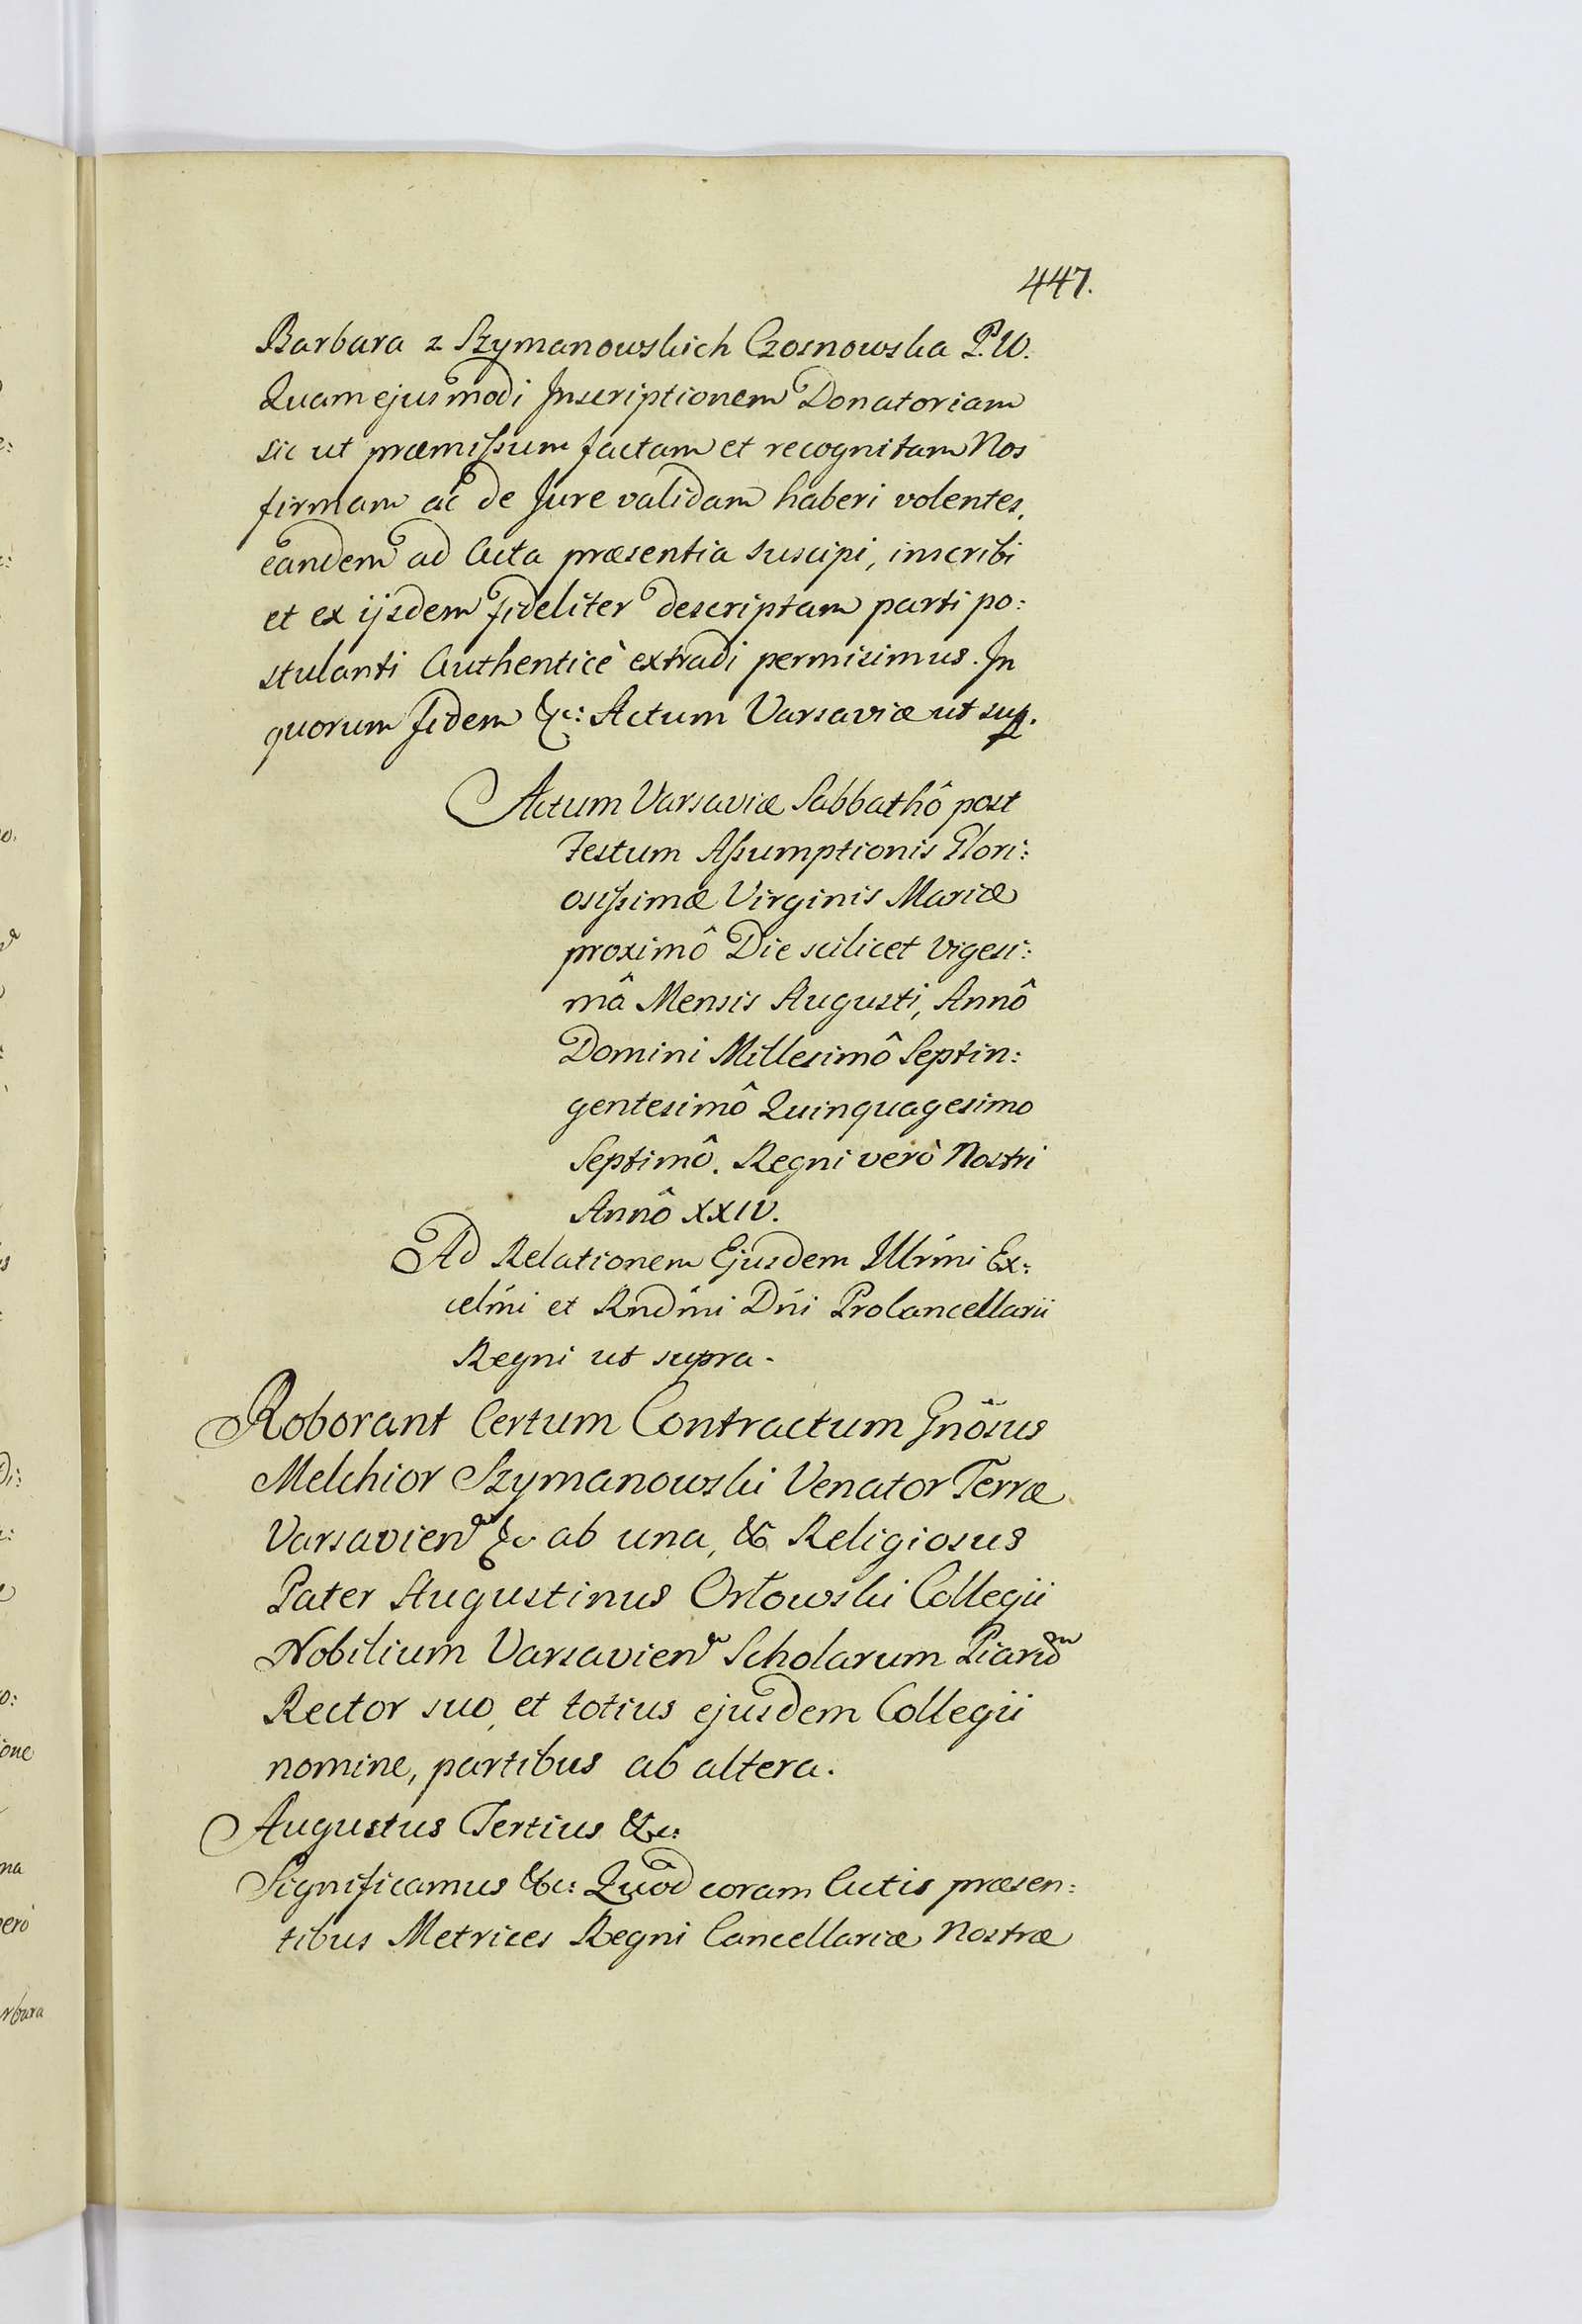 447.
Barbara z Szymanowskich Czosnowska P.W.
Quam ejusmodi Inscriptionem Donatoriam
sic ut præmissum factam et recognitam Nos
firmam ac de Jure validam haberi volentes,
eandem ad Acta præsentia suscipi, inscribi
et ex ijsdem fideliter descriptam parti po:
stulanti Authenticè extradi permisimus. In
quorum fidem &c: Actum Varsaviæ ut sup.
Actum Varsaviæ Sabbathô post
Festum Assumptionis Glori:
osissimæ Virginis Mariæ
proximô Die scilicet vigesi:
mâ Mensis Augusti, Annô
Domini Millesimô Septin:
gentesimô Quinquagesimo
Septimô. Regni verò Nostri
Annô XXIV.
Ad Relationem Ejusdem Illrmi Ex:
celmi et Rndmi Dni Procancellarii
Regni ut supra.
Roborant Certum Contractum Gnôsus
Melchior Szymanowski Venator Terræ
Varsavien &c ab una, & Religiosus
Pater Augustinus Orłowski Collegii
Nobilium Varsavien Scholarum Piarum
Rector suo, et totius ejusdem Collegii
nomine, partibus ab altera.
Augustus Tertius &c:
Significamus &c: Quôd coram Actis præsen:
tibus Metrices Regni Cancellariæ Nostræ